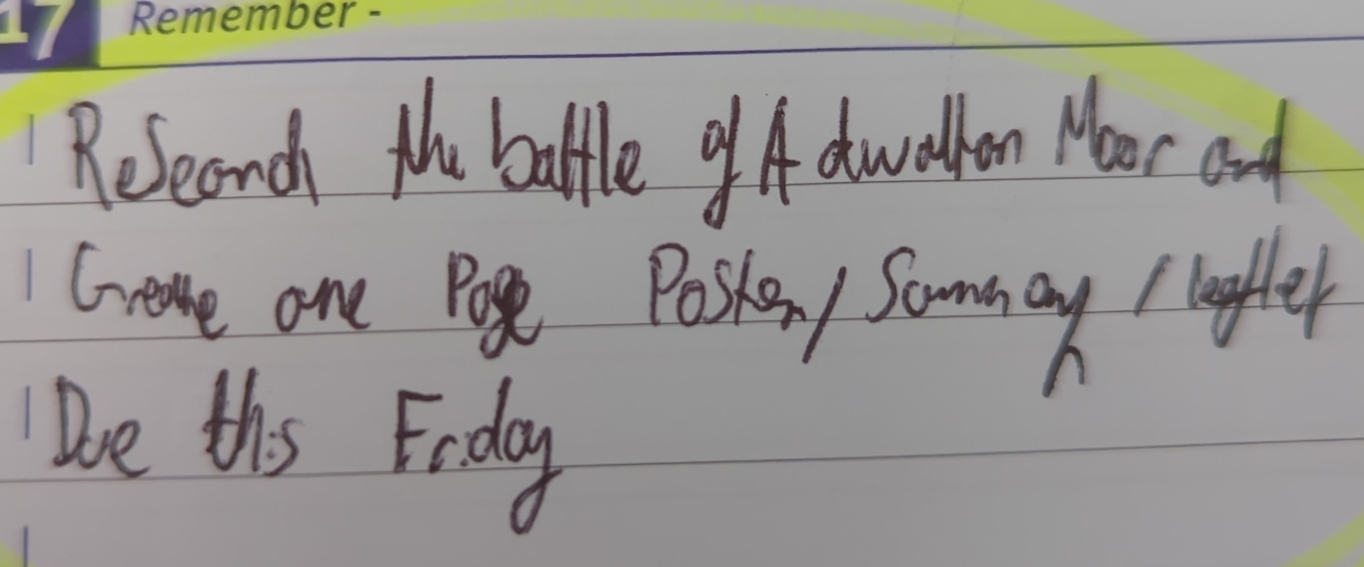 17 Remember -
Research the battle of Adwalton Moor and
Create one Page Poster/ Summary / leaflet
Due this Friday